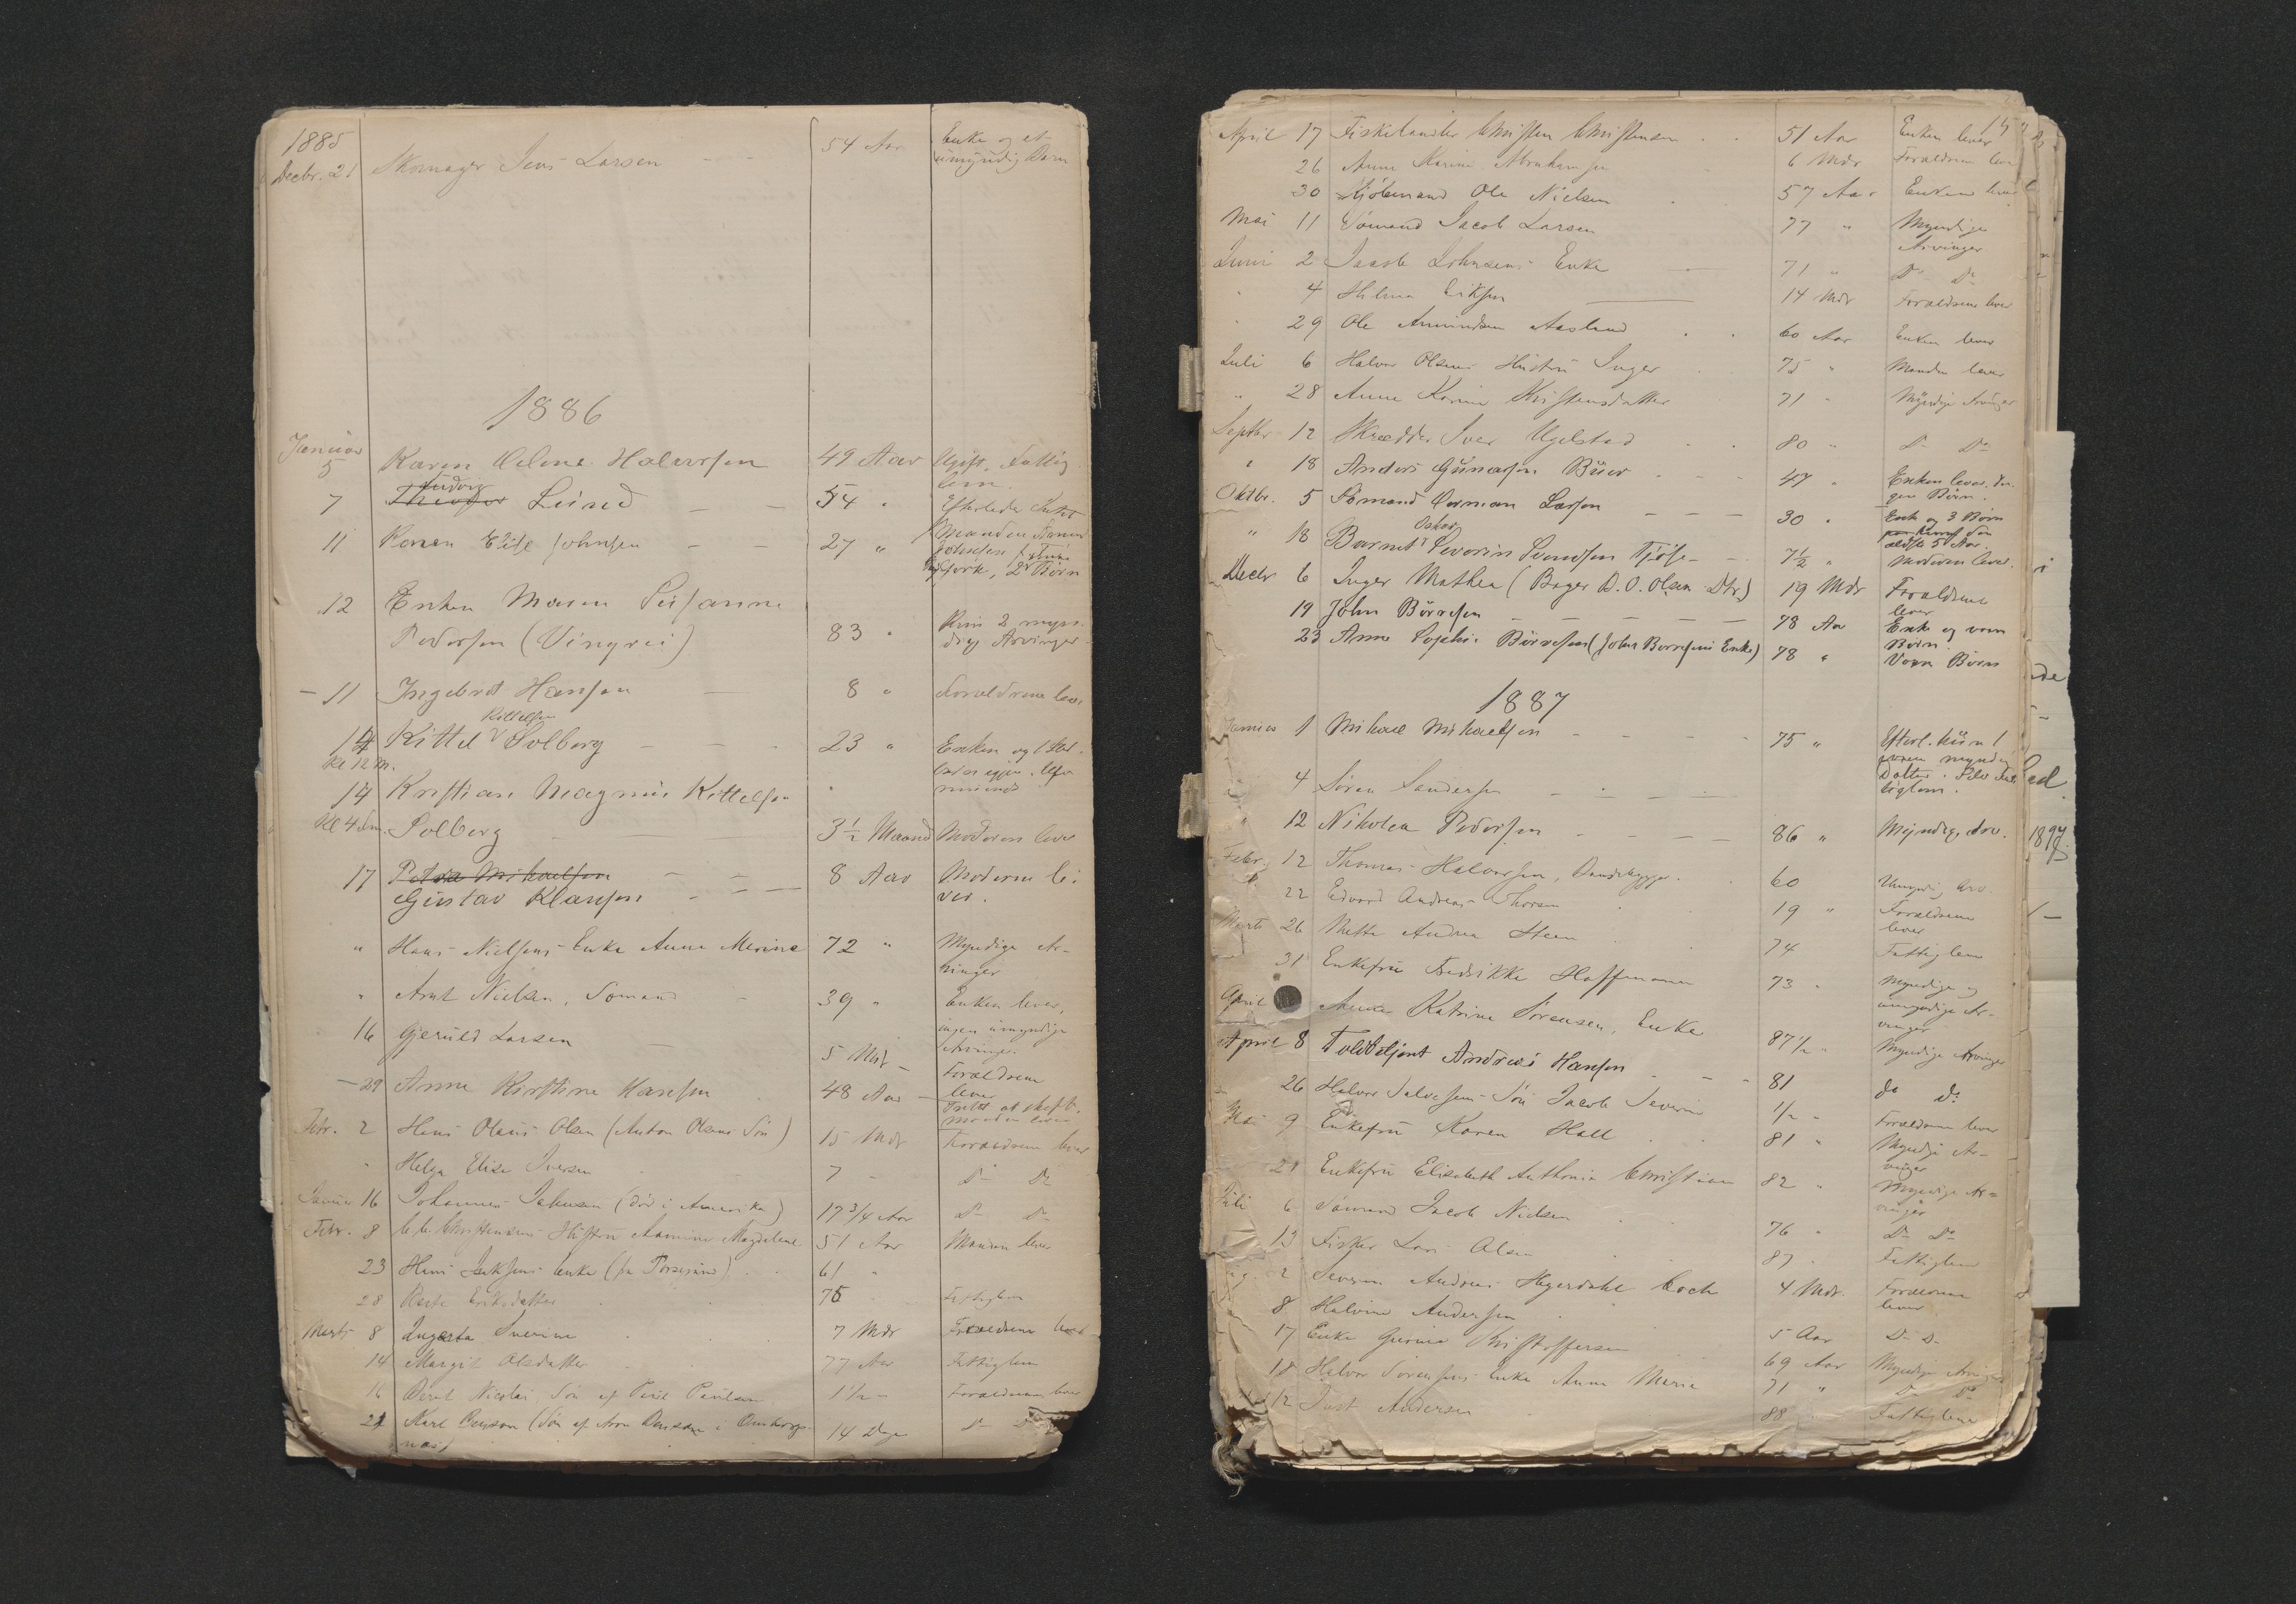 1885
Decbr. 21 Skomager Jens Larsen 54 Aar Enke og et
umyndig Barn
1886
Januar
5 Karen Oeline Halvorsen 49 Aar Ugift. Fattig
lem.
Ludvig
7 Theodor Lund 54 "
11 Karen Elise Johnsen 27 " Manden
Johnsen
2 Børn
12 Enken Maren Susanne
Pedersen (Vingrei) 83 " Kun 2 myn-
dige Arvinger
11 Ingebret Hansen 8 " Forældrene lever
Kittelsen
14 Kittel Solberg 23 " Enken og 1
Kl 12 M.
14 Kristian Magnus Kittelsen
Kl 4 Em. Solberg 3½ Maaned Moderen lever
17 Petra Mikaelsen
Gustav Klausen 8 Aar Moderen le-
ver.
" Hans Nielsens Enke Anne Merine 72 " Myndige Ar-
vinger
" Arnt Nielsen, Sømand 39 " Enken lever,
ingen umyndige
Arvinger.
16 Gjeruld Larsen 5 Mdr Forældrene
lever
29 Anne Kirstine Hansen 48 Aar
Manden lever
Febr. 2 Hans Olaus Olsen (Anton Olsens Søn) 15 Mdr Forældrene lever
" Helga Elise Iversen 7 " Do Do
Januar 16 Johannes Jakobsen (død i Amerika) 17 3/4 Aar Do Do
Febr. 8 Christensens Hustru Magdalene 51 Aar Manden lever
23 Hans Enke (fra 61 "
28 Eriksdatter 75 Fattiglem
Marts 8 Severine 7 Mdr Forældrene lever
14 Margit Olsdatter 77 Aar Fattiglem
16 Nicolai Søn af Paulsen 1½ " Forældrene lever
21 Karl (Søn af i
næs) 14 Dage Do Do
15
April 17 Fiskehandler Christen Christensen 51 Aar Enken lever
26 Anne Karine Abrahamsen 6 Mdr Forældrene lever
30 Kjøbmand Ole Nielsen 57 Aar Enken lever
Mai 11 Sømand Jacob Larsen 77 " Myndige
Arvinger
Juni 2 Jacob Johnsens Enke 71 " Do Do
4 Hilma Eriksen 14 Mdr Forældrene lever
29 Ole Amundsen Aasland 60 Aar Enken lever
Juli 6 Halvor Olsens Hustru Inger 75 " Manden lever
" 28 Anne Karine Kristensdatter 71 " Myndige Arvinger
Septbr 12 Skrædder Iver Ugelstad 80 " Do Do
" 18 Anders Gunersen Buer 47 " Enken lever. In-
gen Børn.
Oktbr. 5 Sømand Herman Larsen 30 " Enke og 3 Børn
ældste 5 Aar.
Oskar
" 18 Barnet Severin Svendsen Tjøse 7½ " Moderen lever.
Decbr 6 Inger Mathea (Bager D. O. Olsen Dtr.) 19 Mdr Forældrene
lever
19 John Børresen 78 Aar Enke og voxn
Børn.
23 Anne Sophie Børresen (John Børresens Enke) 78 " Voxn Børn
1887
Januar 1 Mikael Mikaelsen 75 " Efterl. kun 1
voxen myndig
Datter.
4 Søren Sandersen
12 Nikolea Pedersen 86 " Myndige Arv.
Febr. 12 Thomas Halvorsen, 60 Umyndig Arv.
22 Edvard Andreas Thorsen 19 " Forældrene
lever
Marts 26 Mette Andrea Steen 74 Fattiglem
31 Enkefru Fredrikke Hoffmann 73 " Myndige og
umyndige Ar-
vinger
April Anne Katrine Sørensen, Enke 87½ " Myndige Arvinger
April 8 Toldbetjent Andreas Hansen 81 do do
26 Halvor Salvesens Søn Jacob Severin 1/2 " Forældrene lever
Mai 9 Enkefru Karen Hall 81 " Myndige Ar-
vinger
21 Enkefru Elisabeth Anthonia Christian 82 " Myndige Ar-
vinger
Juli 6 Sømand Jacob Nielsen 76 " Do Do
13 Fisker Lars Olsen 87 " Fattiglem
2 Andreas Hegerdahl Coch 4 Mdr. Forældrene
lever
8 Halvine Andersen 5 Aar Do Do
17 Enke Gurine Kristoffersen 69 Aar Myndige Arvinger
18 Halvor Sørensens Enke Anne Maria 71 " Do Do
12 Just Andersen 88 " Fattiglem
1897